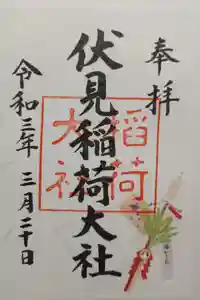 奉拝
伏見稲荷大社
稲荷
大社
令和三年 三月二十日